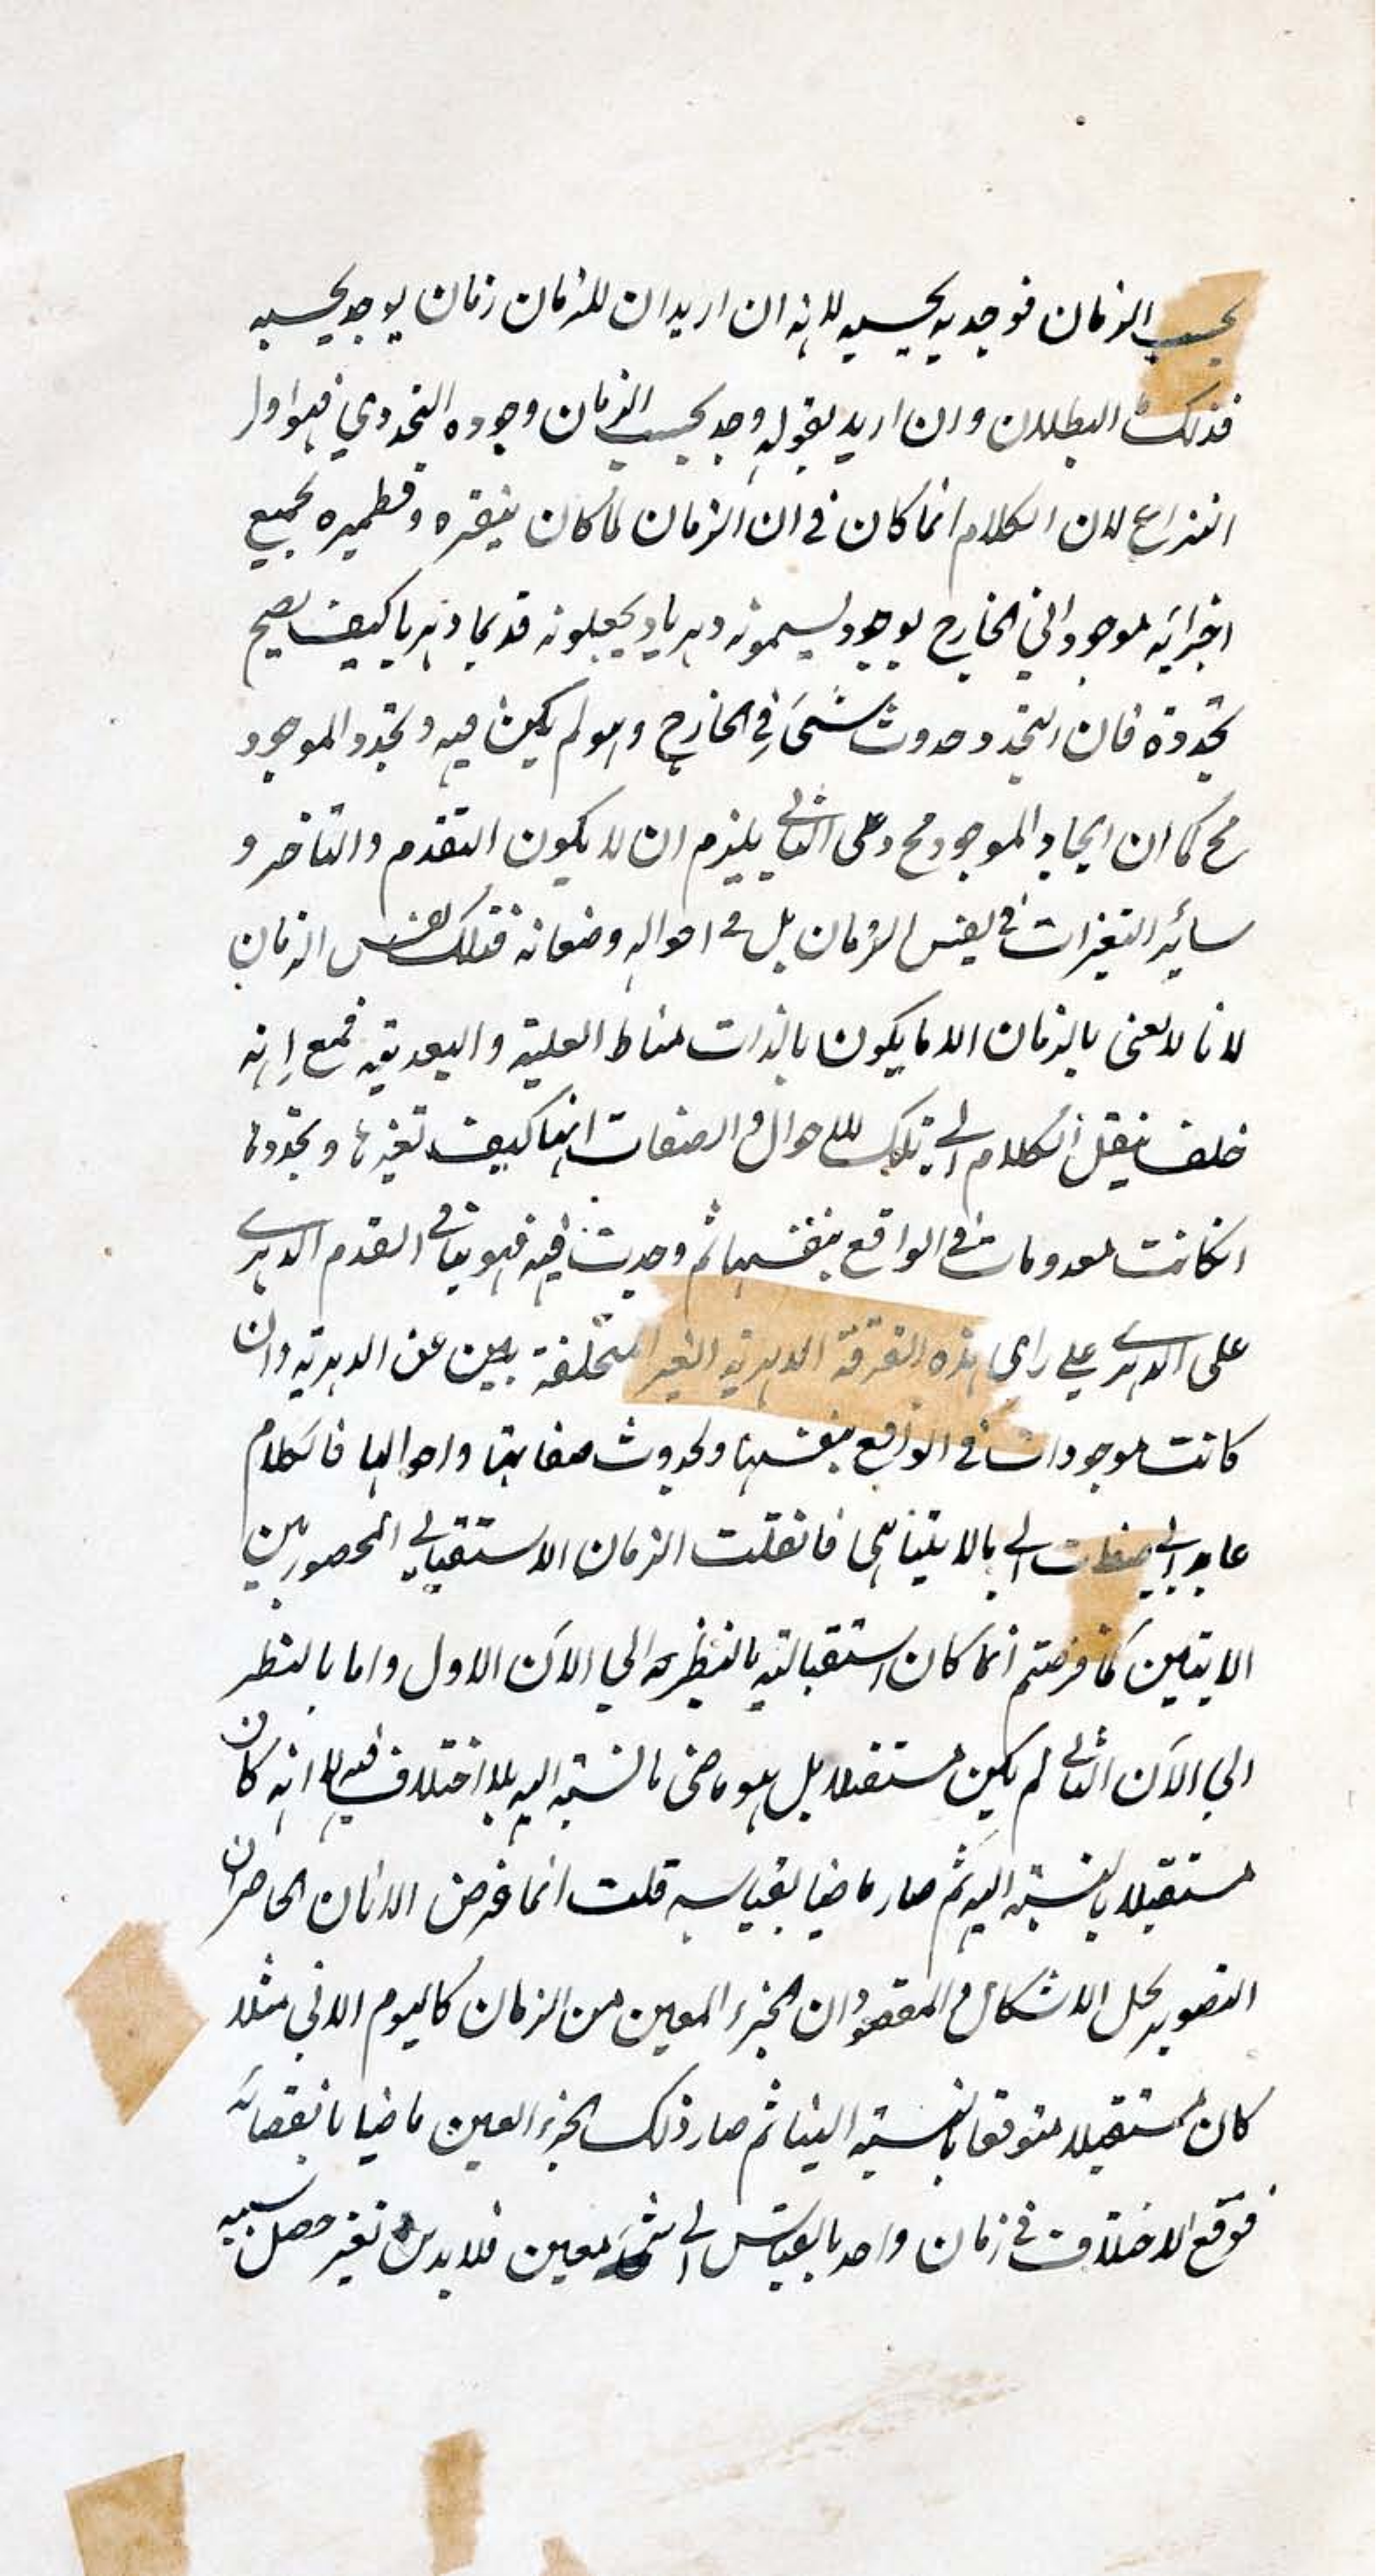 بحسب الزمان فوجد به بحسبه لانه ان اريد ان للزمان زمان يوجد بحسبه
فذلك البطلان وان اريد بقوله وجد بحسب الزمان وجوده التجددي فهو اول
النزاع لان الكلام انما كان في ان الزمان لما كان بنقيره وقطميره بجميع
اجزائه موجودا في الخارج بوجود يسمونه دهريا و يجعلونه قديما دهريا كيف يصح
تجدده فان التجدد حدوث شئ في الخارج وهو لم يكن فيه وتجدد الموجود
مح كما ان ايجاد الموجود مح وعلى الثاني يلزم ان لا يكون التقدم والتاخر و
سائر التغيرات في نفس الزمان بل في احواله وصفاته فتلك نفس الزمان
لانا لا نعنى بالزمان الا ما يكون بالذات مناط القبلية والبعدية فمع انه
خلف ينقل الكلام الى تلك الاحوال و الصفات انها كيف تغيرها وتجددها
انكانت معدومات في الواقع بنفسها ثم وجدت فيه فهو ينافي القدم الدهري
على الدهري على راى هذه الفرقة الدهرية الغير المتخلفة بين عن الدهرية وان
كانت موجودات في الواقع بنفسها ولحدوث صفاتها واحوالها فالكلام
عايد الى صفات الى مالا يتناهى فانقلت الزمان الاستقبالي المحصور بين
الاتيين كما فرضتم انما كان استقباليته بالنظر الى الآن الاول واما بالنظر
الى الآن الثاني لم يكن مستقبلا بل هو ماضى بالنسبة اليه بلا اختلاف فيه لا انه كان
مستقبلا بالنسبة اليه ثم صار ماضيا بقياسه قلت انما فرض الانان الحاصران
التصوير محل الاشكال و المقصود ان الجزء المعين من الزمان كاليوم الاتي مثلا
كان مستقبلا متوقعا بالنسبة الينا ثم صار ذلك الجزء المعين ماضيا بانقضائه
فوقع الاختلاف في زمان واحد بالقياس الى شئ معين فلا بد من تغير حصل بسببه